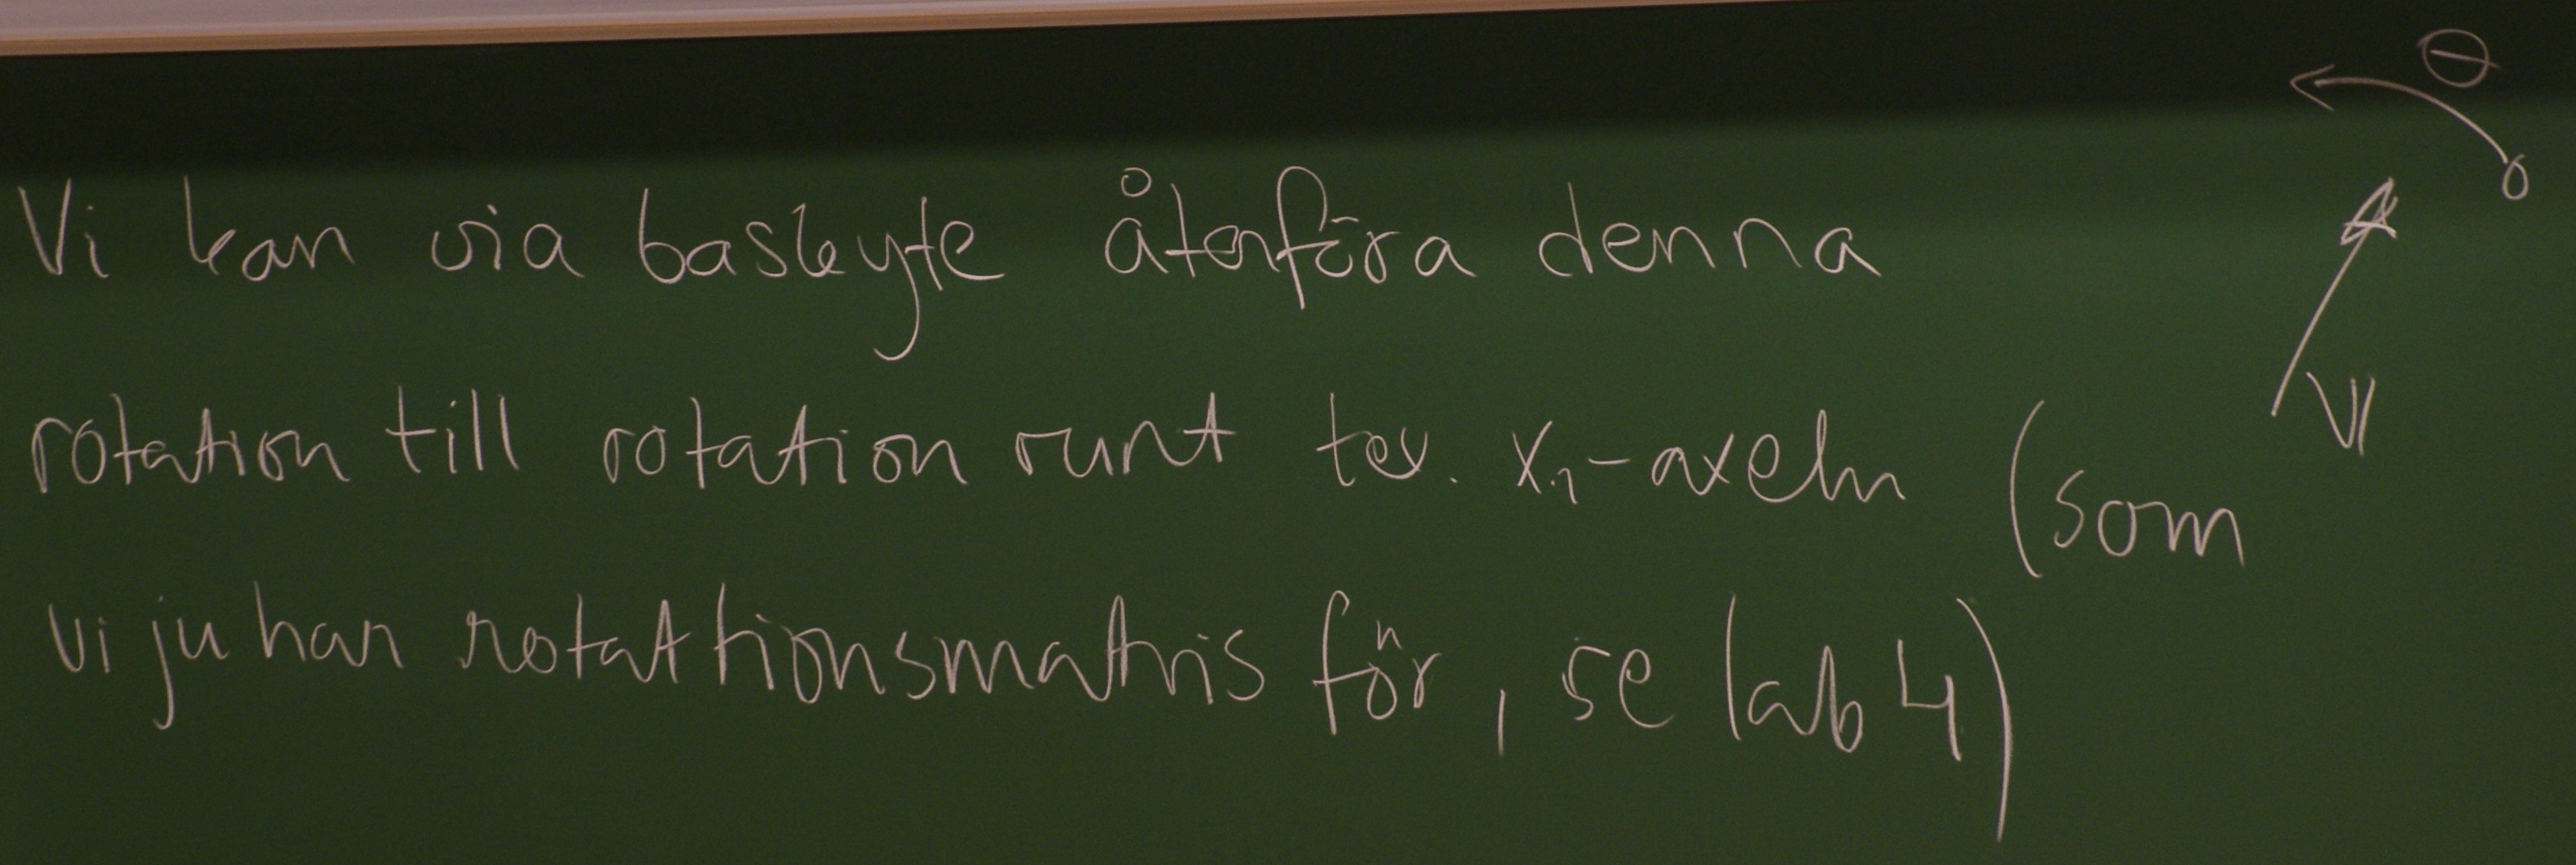 θ
Vi kan via basbyte återföra denna
rotation till rotation runt tex. x₁-axeln (som
vi ju har rotationsmatris för, se lab 4)